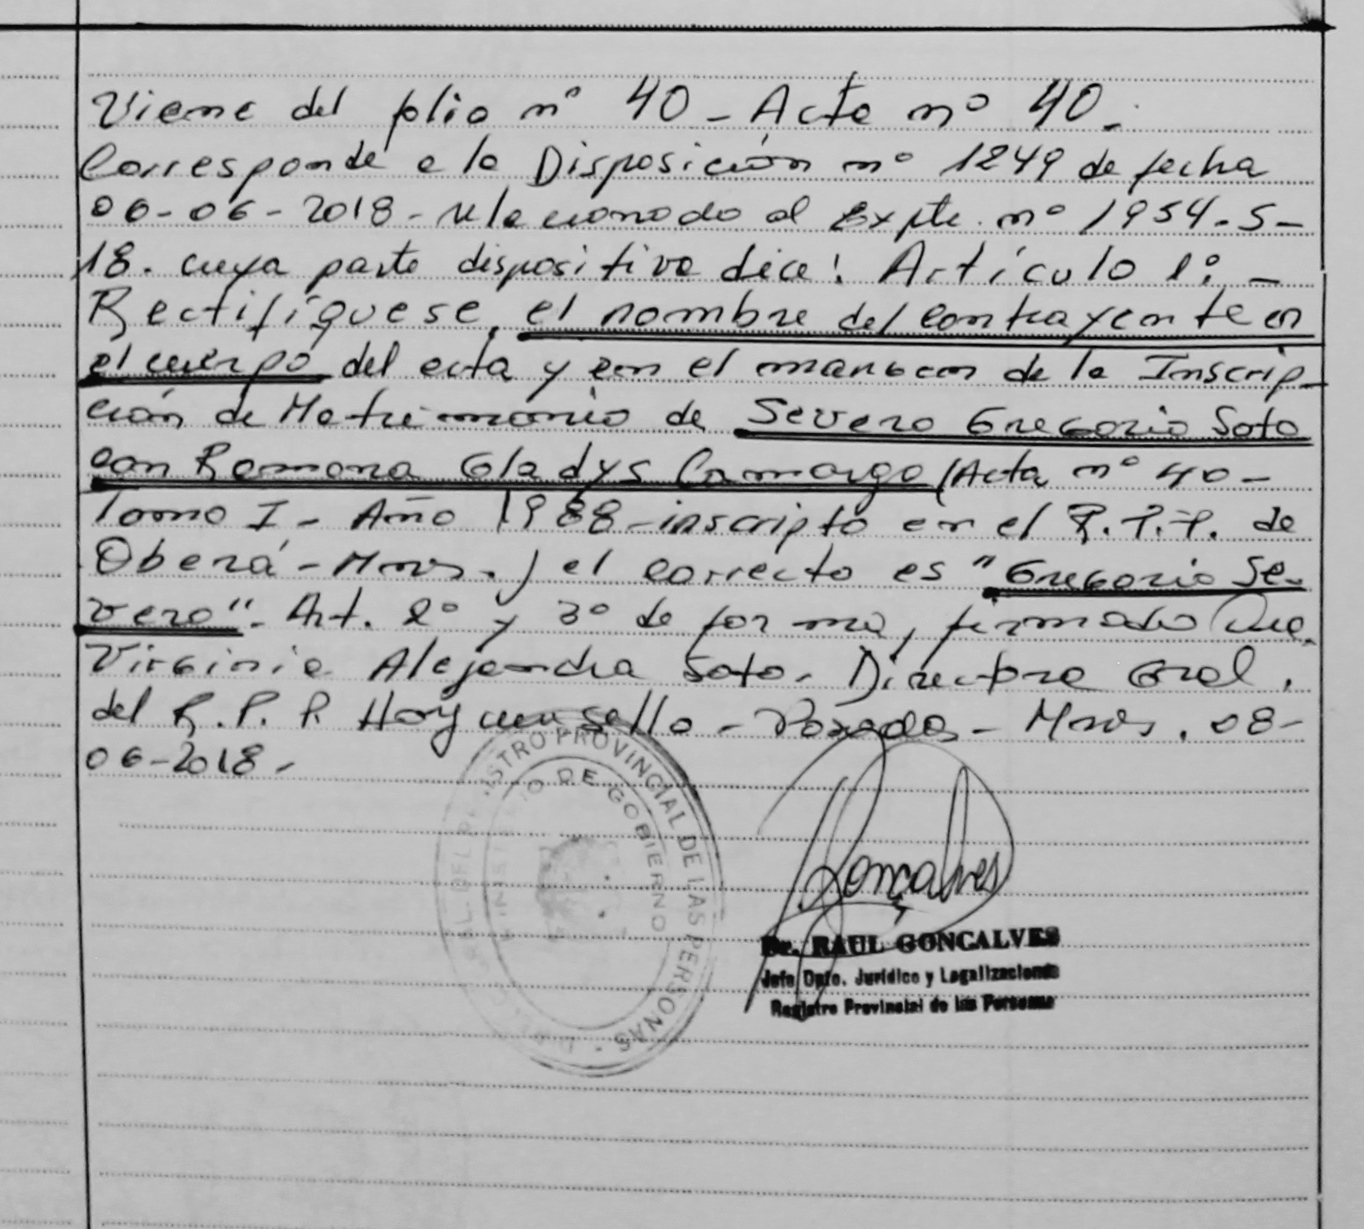 Viene del folio nº 40 - Acta nº 40.
Corresponde a la Disposición nº 1249 de fecha
06-06-2018 - relacionado al Expte. nº 1954-S-
18. cuya parte dispositiva dice: Artículo 1º: -
Rectifíquese, el nombre del contrayente en
el cuerpo del acta y en el margen de la Inscrip-
ción de Matrimonio de Severo Gregorio Soto
con Ramona Gladys Camargo (Acta nº 40-
Tomo I - Año 1988 - inscripto en el R.P.P. de
Oberá - Mnes.) el correcto es "Gregorio Se-
vero". Art. 2º y 3º de forma, firmado Dra.
Virginia Alejandra Soto. Directora Gral.
del R.P.P. Hay un sello - Posadas - Mnes. 08-
06-2018.-
REGISTRO PROVINCIAL DE LAS PERSONAS
MINISTERIO DE GOBIERNO
Gonçalves
Dr. RAUL GONCALVES
Jefe Dpto. Jurídico y Legalizaciones
Registro Provincial de las Personas